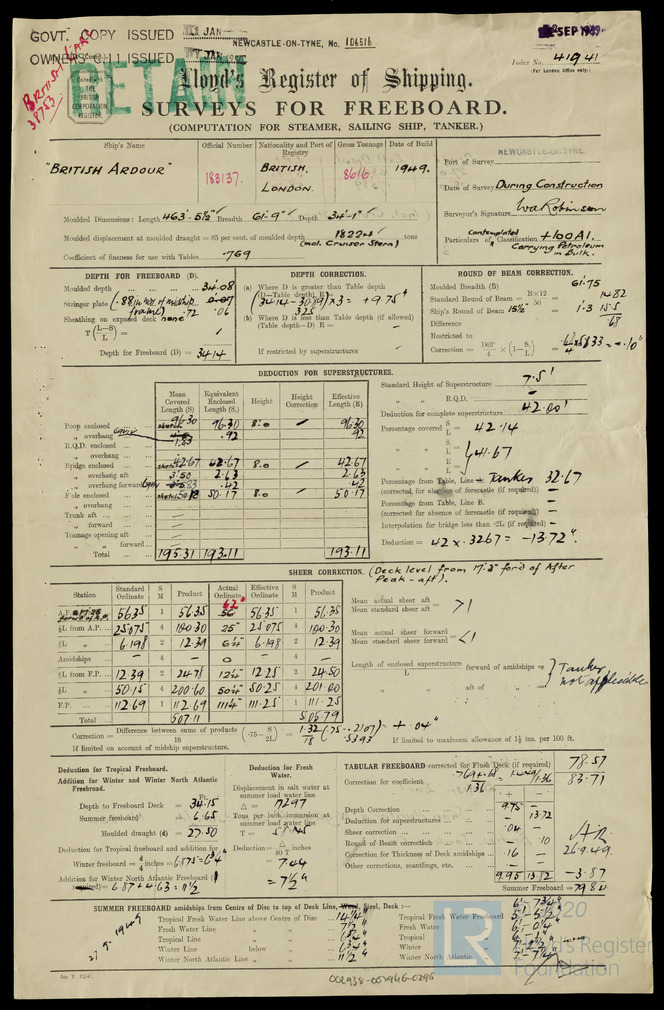 GOVT. COPY ISSUED JAN
OWNERS ISSUED JAN
NEWCASTLE-ON-TYNE, No. 106516
SEP 1949
Index No. 41941
(For London Office only.)
BRITISH
38753
RETAIN
THE
BRITISH
CORPORATION
REGISTER
Lloyd's Register of Shipping.
SURVEYS FOR FREEBOARD.
(COMPUTATION FOR STEAMER, SAILING SHIP, TANKER.)
Ship's Name Official Number Nationality and Port of Registry Gross Tonnage Date of Build
"BRITISH ARDOUR" 183137. BRITISH. LONDON. 8616. 1949.
Port of Survey NEWCASTLE-ON-TYNE
Date of Survey During Construction
Surveyor's Signature Wa Robinson
Contemplated
Particulars of Classification +100A1. Carrying Petroleum in Bulk.
Moulded Dimensions: Length 463'-5½" Breadth 61'-9" Depth 34'-1"
Moulded displacement at moulded draught = 85 per cent. of moulded depth 18224 tons
(incl. Cruiser Stern)
Coefficient of fineness for use with Tables .769
DEPTH FOR FREEBOARD (D).
Moulded depth 34.08
Stringer plate .06
Sheathing on exposed deck none
T (L-S/L)
Depth for Freeboard (D) = 34.14
DEPTH CORRECTION.
(a) Where D is greater than Table depth
(D-Table depth) R = (34.14-30.89) × 3 = +9.75"
(b) Where D is less than Table depth (if allowed)
(Table depth-D) R =
If restricted by superstructures
ROUND OF BEAM CORRECTION.
Moulded Breadth (B) 61.75
Standard Round of Beam = B×12/50 = 14.82
Ship's Round of Beam 15½" = 15.5
Difference .68
Restricted to
Correction = Diff/4 × (1-S1/L) = .68/4 × .5833 = -.10"
DEDUCTION FOR SUPERSTRUCTURES.
Mean Covered Length (S) Equivalent Enclosed Length (S1) Height Height Correction Effective Length (E)
Poop enclosed 96.30 96.30 8.0 96.30
" overhang 1.83 .92 .92
R.Q.D. enclosed
" overhang
Bridge enclosed 42.67 42.67 8.0 42.67
" overhang aft 3.50 2.63 2.63
" overhang forward .83 .42 .42
F'cle enclosed 50.17 8.0 50.17
" overhang
Trunk aft
" forward
Tonnage opening aft
" " forward
Total 195.31 193.11 193.11
Standard Height of Superstructure 7.5'
" " R.Q.D. -
Deduction for complete superstructure 42.00"
Percentage covered S/L = 42.14
" " S1/L =
" " E/L = } 41.67
Percentage from Table, Line Tanker 32.67
(corrected for absence of forecastle (if required))
Percentage from Table, Line B.
(corrected for absence of forecastle (if required))
Interpolation for bridge less than .2L (if required)
Deduction = 42 × .3267 = -13.72".
SHEER CORRECTION. (Deck level from 17'.3" for'd of After Peak - aft).
Station Standard Ordinate S M Product Actual Ordinate Effective Ordinate S M Product
62"
A.P. 56.35 1 56.35 56" 56.35 1 56.35
⅙L from A.P. 25.075 4 100.30 25" 25.075 4 100.30
⅓L " 6.198 2 12.39 6¼" 6.198 2 12.39
Amidships - 4 - 0 - 4 -
⅓L from F.P. 12.39 2 24.78 12¼" 12.25 2 24.50
⅙L " 50.15 4 200.60 50¼" 50.25 4 201.00
F.P. 112.69 1 112.69 111¼" 111.25 1 111.25
Total 507.11 505.79
Mean actual sheer aft
Mean standard sheer aft = >1
Mean actual sheer forward
Mean standard sheer forward = <1
Length of enclosed superstructure/L forward of amidships =
" " aft of " = } Tanker not applicable
Correction = Difference between sums of products/18 (.75 - S/2L) = 1.32/18 (.75-.2107) = +.04"
.5393
If limited to maximum allowance of 1½ ins. per 100 ft.
If limited on account of midship superstructure.
Deduction for Tropical Freeboard.
Addition for Winter and Winter North Atlantic Freeboard.
Ft.
Depth to Freeboard Deck = 34.15
Summer freeboard = 6.65
Moulded draught (d) = 27.50
Deduction for Tropical freeboard and addition for
Winter freeboard = d/4 inches = 6.875 = 6¾"
Addition for Winter North Atlantic Freeboard (if required) = 6.87 + 4.63 = 11½
Deduction for Fresh Water.
Displacement in salt water at summer load water line
△ = 17297
Tons per inch immersion at summer load water line
T =
Deduction = △/40 T inches
= 7.44
= 7½"
TABULAR FREEBOARD corrected for Flush Deck (if required) 78.57
Correction for coefficient .769+.68/1.36 = 1.449/1.36 83.71
+ -
Depth Correction 9.75 -
Deduction for superstructures - 13.72
Sheer correction .04 -
Round of Beam correction - .10
Correction for Thickness of Deck amidships .16 -
Other corrections, scantlings, etc.
9.95 13.82 -3.87
Summer Freeboard = 79.84
26.9.49
SUMMER FREEBOARD amidships from Centre of Disc to top of Deck Line, Wood, Steel, Deck :- 6'-7¾"
Tropical Fresh Water Line above Centre of Disc 14¼" Tropical Fresh Water Freeboard 5'-5½"
Fresh Water Line " " 7½" Fresh Water " 6'-0¼"
Tropical Line " " 6¾" Tropical " 6'-1"
Winter Line below " 6¾" Winter " 7'-2½"
Winter North Atlantic Line " " 11½" Winter North Atlantic " 7'-7¼"
9.1949
002938-002946-0296
LR
2020
Lloyd's Register
Foundation